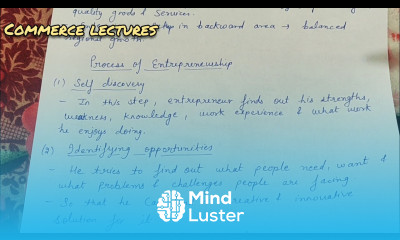 quality goods & services.
COMMERCE LECTURES
in backward area → balanced
regional growth
Process of Entrepreneurship
(1) Self discovery
- In this step, entrepreneur finds out his strengths,
weakness, knowledge, work experience & what work
he enjoys doing.
(2) Identifying opportunities
- He tries to find out what people need, want &
what problems & challenges people are facing
- So that he can creative & innovative
solution for it
Mind
Luster